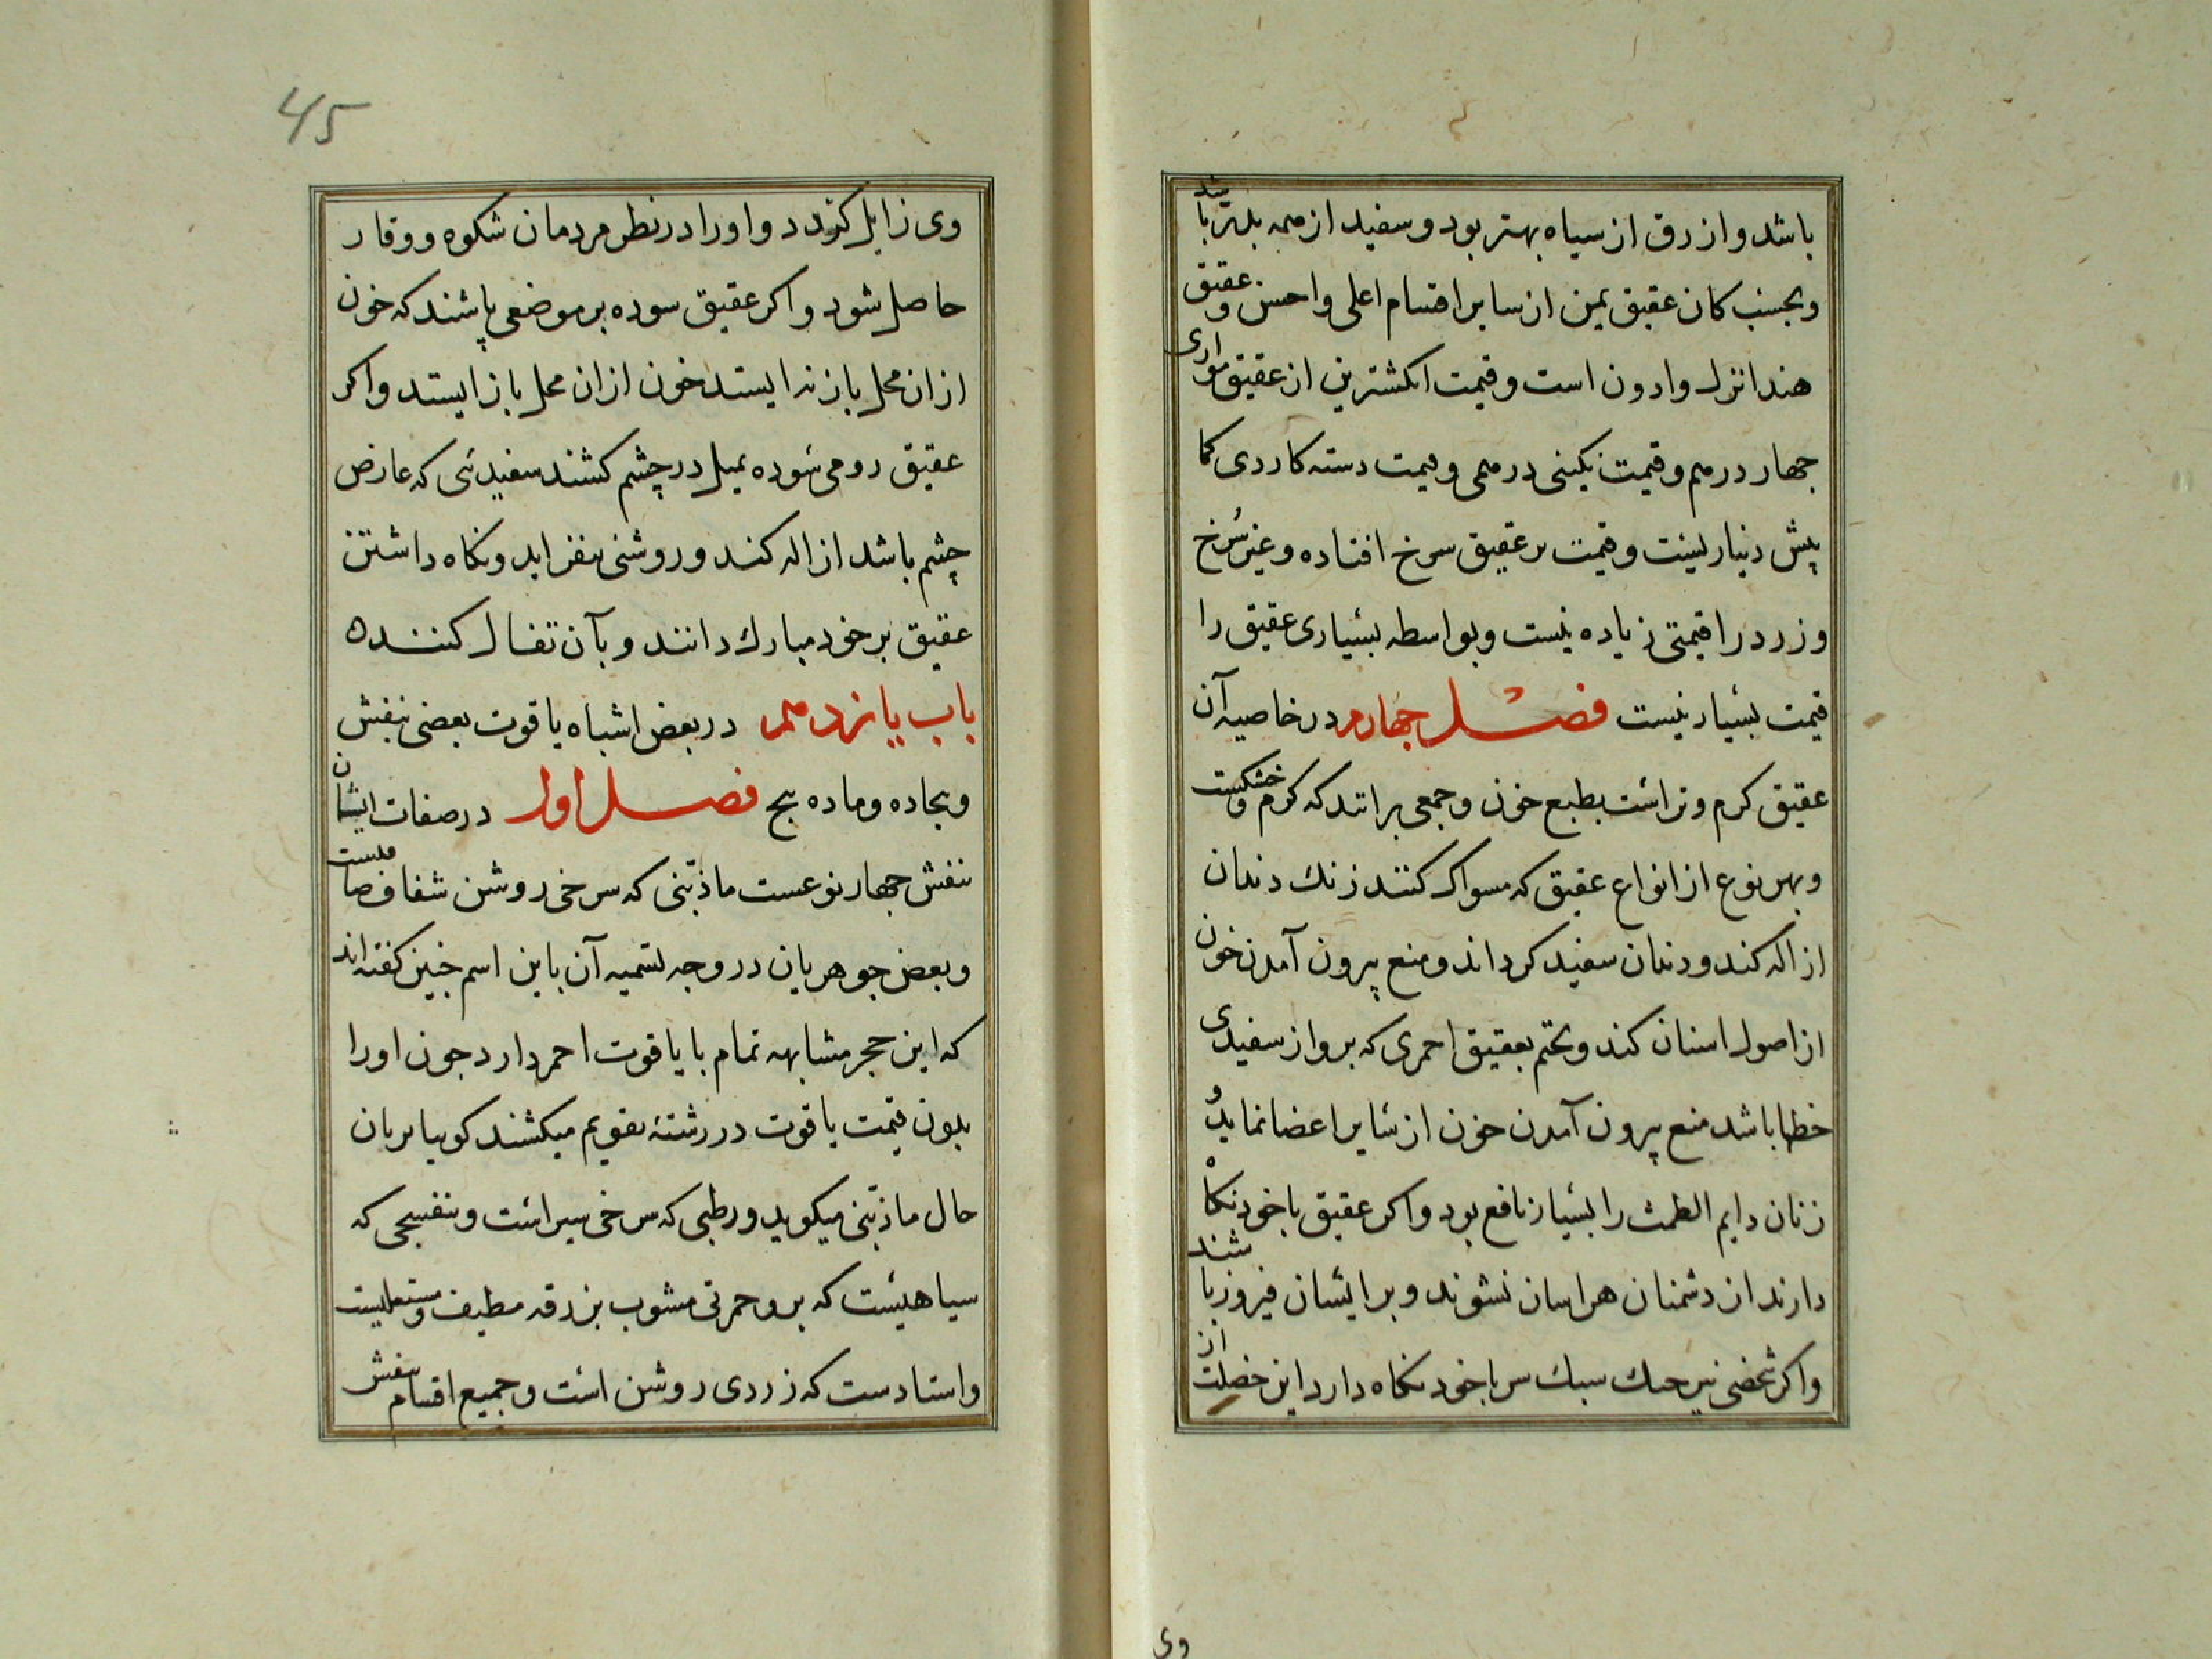 باشد و ازرق از سیاه بهتر بود و سفید از همه بدتر باشد
و بحسب کان عقیق یمن از سایر اقسام اعلی و احسن و عقیق
هند انزل و ادون است و قیمت انکشترین از عقیق
جهار درهم و قیمت نکینی درهمی و قیمت دسته کاردی کما
پیش دنیار لیست و قیمت بر عقیق سرخ افتاده و غیر سُرخ
و زرد را قیمتی زیاده نیست و بواسطه بسیاری عقیق را
قیمت بسیار نیست فصل جهارم در خاصیه آن
عقیق کرم و تر است بطبع خون و جمعی برانند که کرم و خشکست
و بهر نوع از انواع عقیق که مسواک کنند زنک دندان
ازاله کند و دندان سفید کرداند و منع بیرون آمدن خون
از اصول اسنان کند و تختم بعقیق احمری که بر و از سفیدی
خطها باشد منع بیرون آمدن خون از سایر اعضا نماید و
زنان دایم الطمث را بسیار نافع بود و اکر عقیق با خود نکاه
دارند از دشمنان هراسان نشوند و بر ایشان فیروز باشند
و اکر شخصی سبک سر با خود نکاه دارد این خصلت از
وی
45
وی زایل کردد و او را در نظر مردمان شکوه و وقار
حاصل شود و اکر عقیق سوده بر موضعی پاشند که خون
از ان محل باز نه ایستد خون از ان محل باز ایستد و اکر
عقیق رومی سوده بمیل در چشم کشند سفیدئی که عارض
چشم باشد ازاله کند و روشنی بیفزاید و نکاه داشتن
عقیق بر خود مبارک دانند و بآن تفال کننده
باب یازدهم در بعض اشباه یاقوت بعضی بنفش
و بجاده و ماده بنج فصل اول در صفات ایشان
بنفش جهار نوعست ماذبنی که سرخی روشن شفاف صافیست
و بعض جوهریان در وجه تسمیه آن باین اسم جنین کفته اند
که این حجر مشابهه تمام با یاقوت احمر دارد جون او را
بدون قیمت یاقوت در رشتهٔ تقویم میکشند کوییا بزبان
حال ماذبنی میکوید و رطبی که سرخی سیراست و بنفسجی که
سیاهیست که بر و حمرتی مشوب بزرقه مطیف و مستعلیست
و استادست که زردی روشن است و جمیع اقسام بنفش